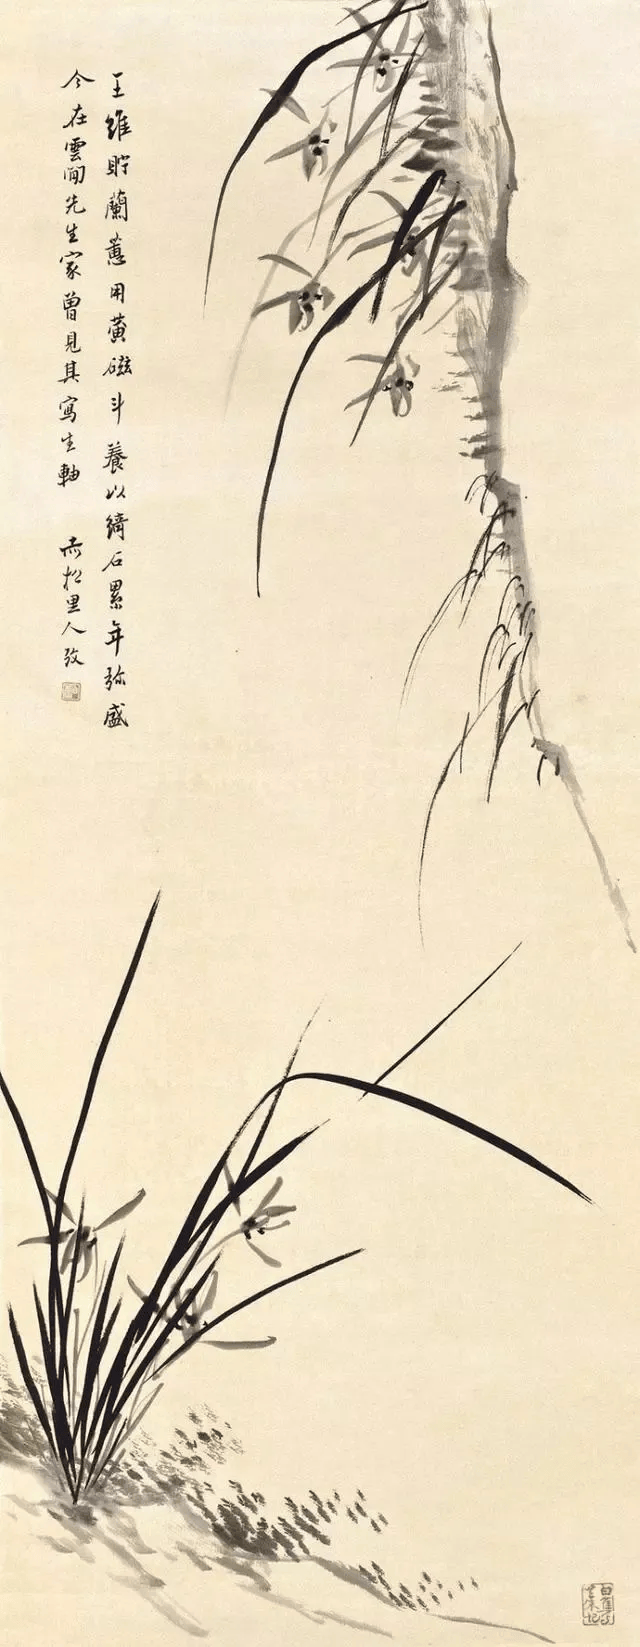 王維貯蘭蕙用黄磁斗養以綺石累年弥盛
今在雲間先生家曾見其寫生軸 赤松里人孜